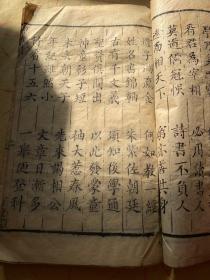 看君為宰相 必用讀書人
莫道儒冠悮 詩書不負人
達而相天下 窮亦善其身
遺子滿籯金 何如教一經
姓名書錦軸 朱紫佐朝廷
古有千文義 須知後學通
聖賢俱間出 以此發蒙童
神童衫子短 袖大惹春風
未去朝天子 先來謁相公
年紀雖然小 文章日漸多
待看十五六 一舉便登科